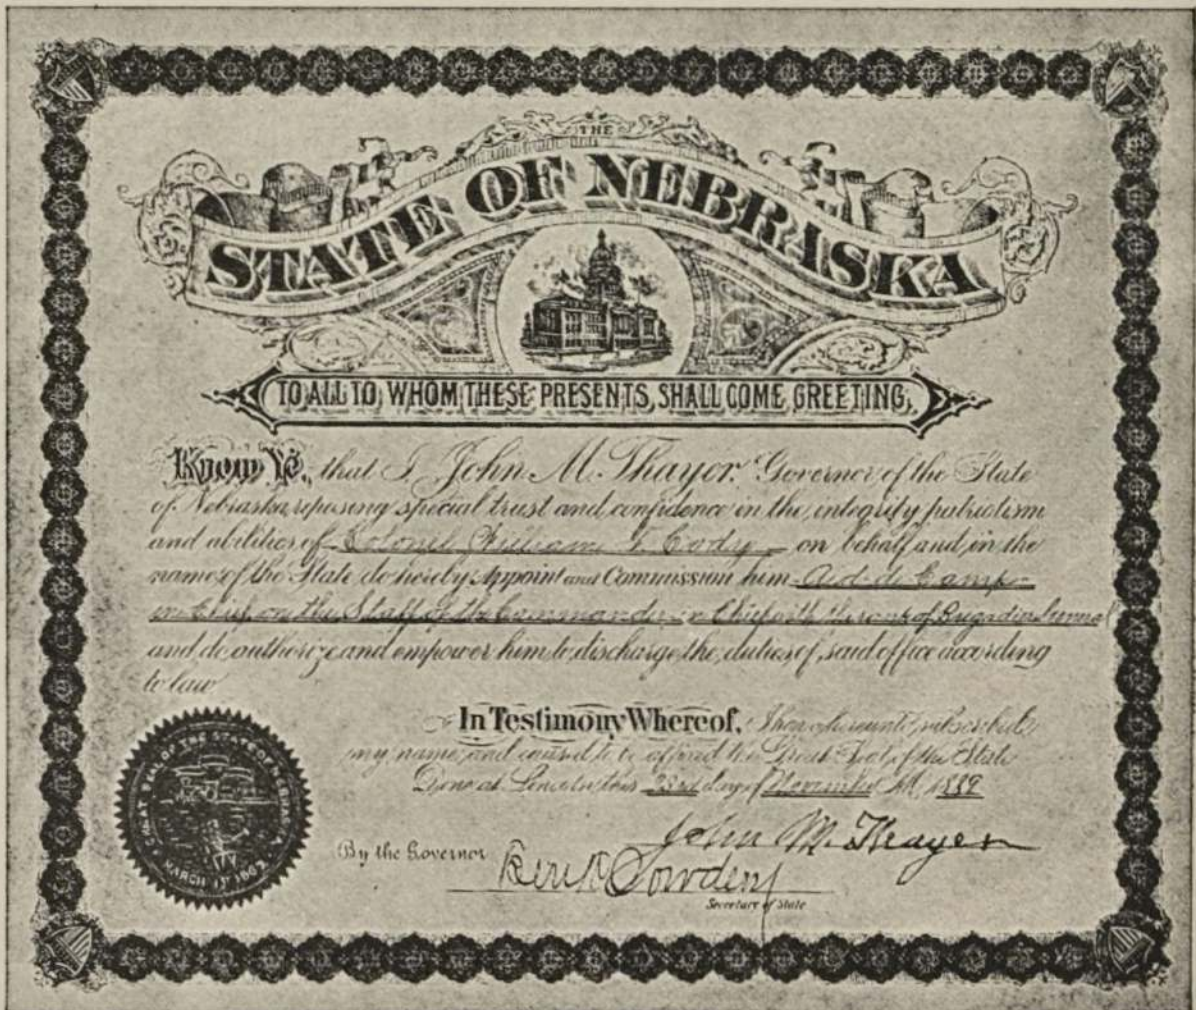 THE
STATE OF NEBRASKA
TO ALL TO WHOM THESE PRESENTS SHALL COME GREETING,
Know Ye, that I, John M. Thayer, Governor of the State
of Nebraska, reposing special trust and confidence in the integrity patriotism
and abilities of Colonel William F. Cody on behalf and in the
name of the State do hereby Appoint and Commission him Aid-de-Camp-
in Chief on the Staff of the Commander in Chief with the rank of Brigadier General
and do authorize and empower him to discharge the duties of said office according
to law
In Testimony Whereof, I have hereunto subscribed
my name and caused to be affixed the Great Seal of the State
Done at Lincoln this 23rd day of November A.D. 1889
John M. Thayer
By the Governor
Cowdery
Secretary of State
GREAT SEAL OF THE STATE OF NEBRASKA
MARCH 1ST 1867